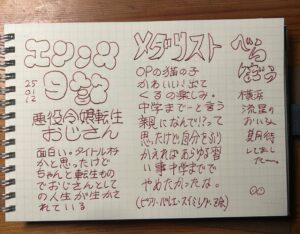 エンタメ
日記
25
01
12
悪役令嬢転生
おじさん
面白い。タイトルオチ
かと思ったけど
ちゃんと転生もの
でおじさんとして
の人生が生かさ
れている
メダリスト
OPの猫の子
かわいい。出て
くるの楽しみ。
中学まで…と言う
親になんで!?って
思ったけど自分をふり
かえればあらゆる習
い事中学まで
でやめたかったな。
(ピアノ・バレエ・スイミング・
べらぼう
横浜
流星の
おいらん
期待
してまし
た